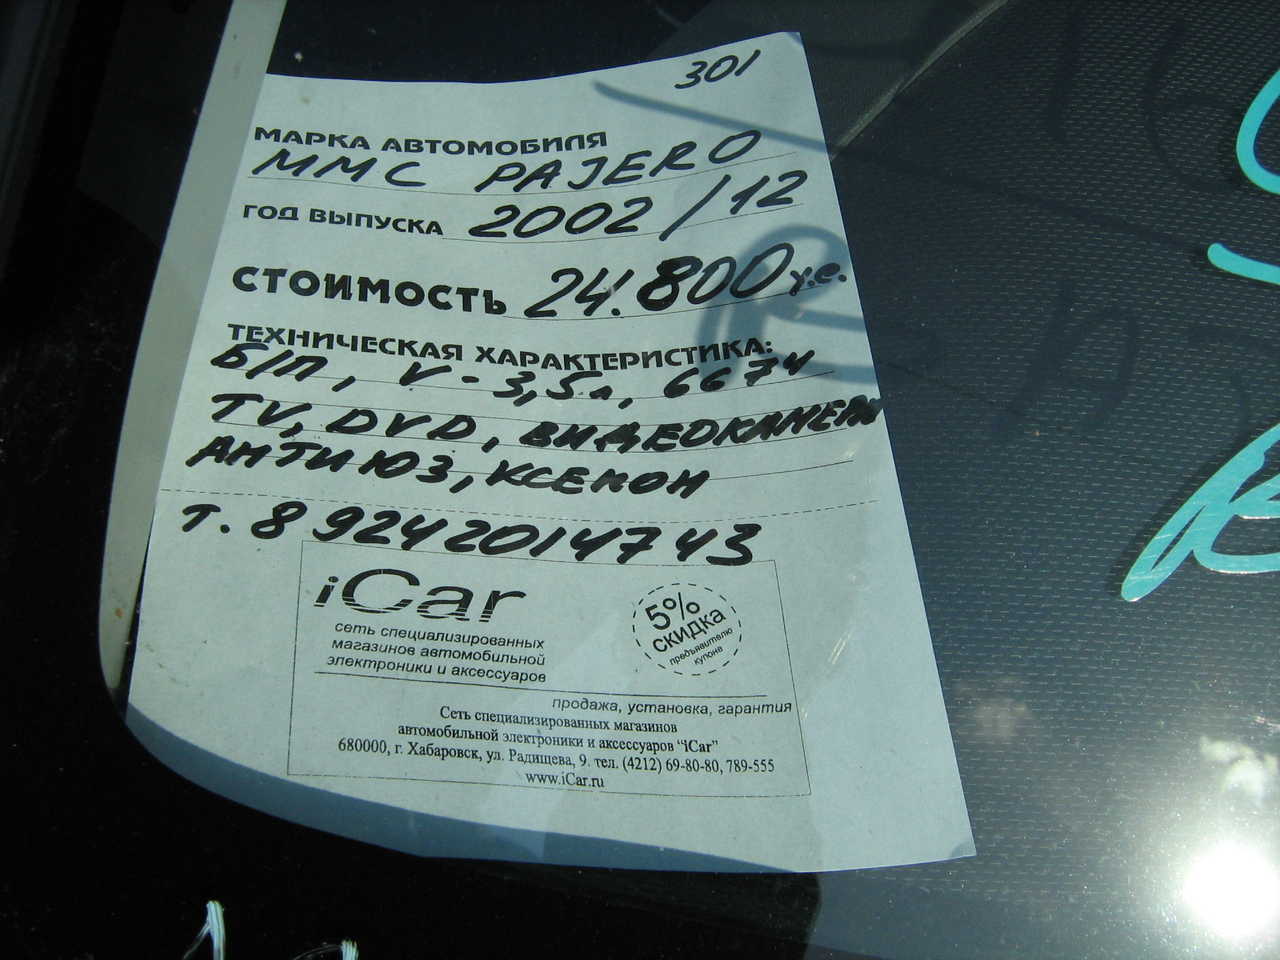 301
МАРКА АВТОМОБИЛЯ
MMC PAJERO
ГОД ВЫПУСКА 2002/12
СТОИМОСТЬ 24.800 у.е.
ТЕХНИЧЕСКАЯ ХАРАКТЕРИСТИКА:
Б/П, V-3,5л, 6674
TV, DVD, ВИДЕОКАМЕРА
АНТИЮЗ, КСЕНОН
т. 89242014743
iCar
сеть специализированных
магазинов автомобильной
электроники и аксессуаров
5%
скидка
предъявителю
купона
продажа, установка, гарантия
Сеть специализированных магазинов
автомобильной электроники и аксессуаров "iCar"
680000, г. Хабаровск, ул. Радищева, 9. тел. (4212) 69-80-80, 789-555
www.iCar.ru